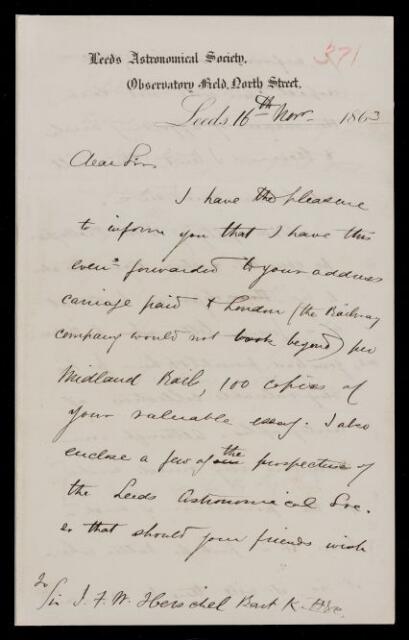 371
Leeds Astronomical Society,
Observatory Field, North Street,
Leeds 16th Novr. 1863
Dear Sir,
I have the pleasure
to inform you that I have this
even.g forwarded to your address
carriage paid to London (the Railway
company would not book beyond) per
Midland Rail, 100 copies of
your valuable essay. I also
enclose a few of the prospectus of
the Leeds Astronomical Soc.
so that should your friends wish
To
Sir J. F. W. Herschel Bart K.